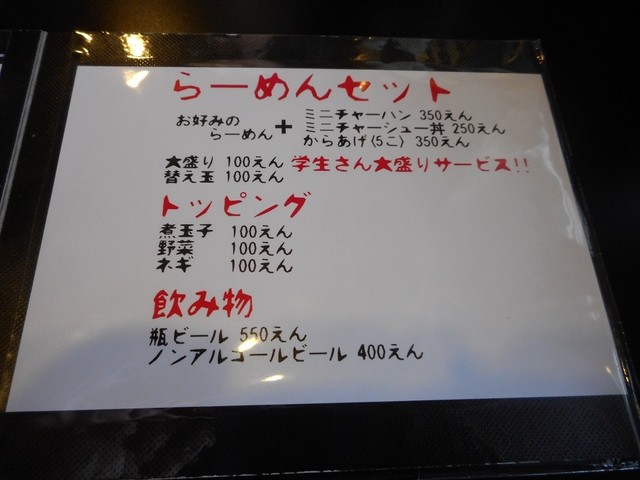 らーめんセット
お好みの
らーめん
+
ミニチャーハン 350えん
ミニチャーシュー丼 250えん
からあげ(5こ) 350えん
大盛り 100えん 学生さん大盛りサービス!!
替え玉 100えん
トッピング
煮玉子 100えん
野菜 100えん
ネギ 100えん
飲み物
瓶ビール 550えん
ノンアルコールビール 400えん